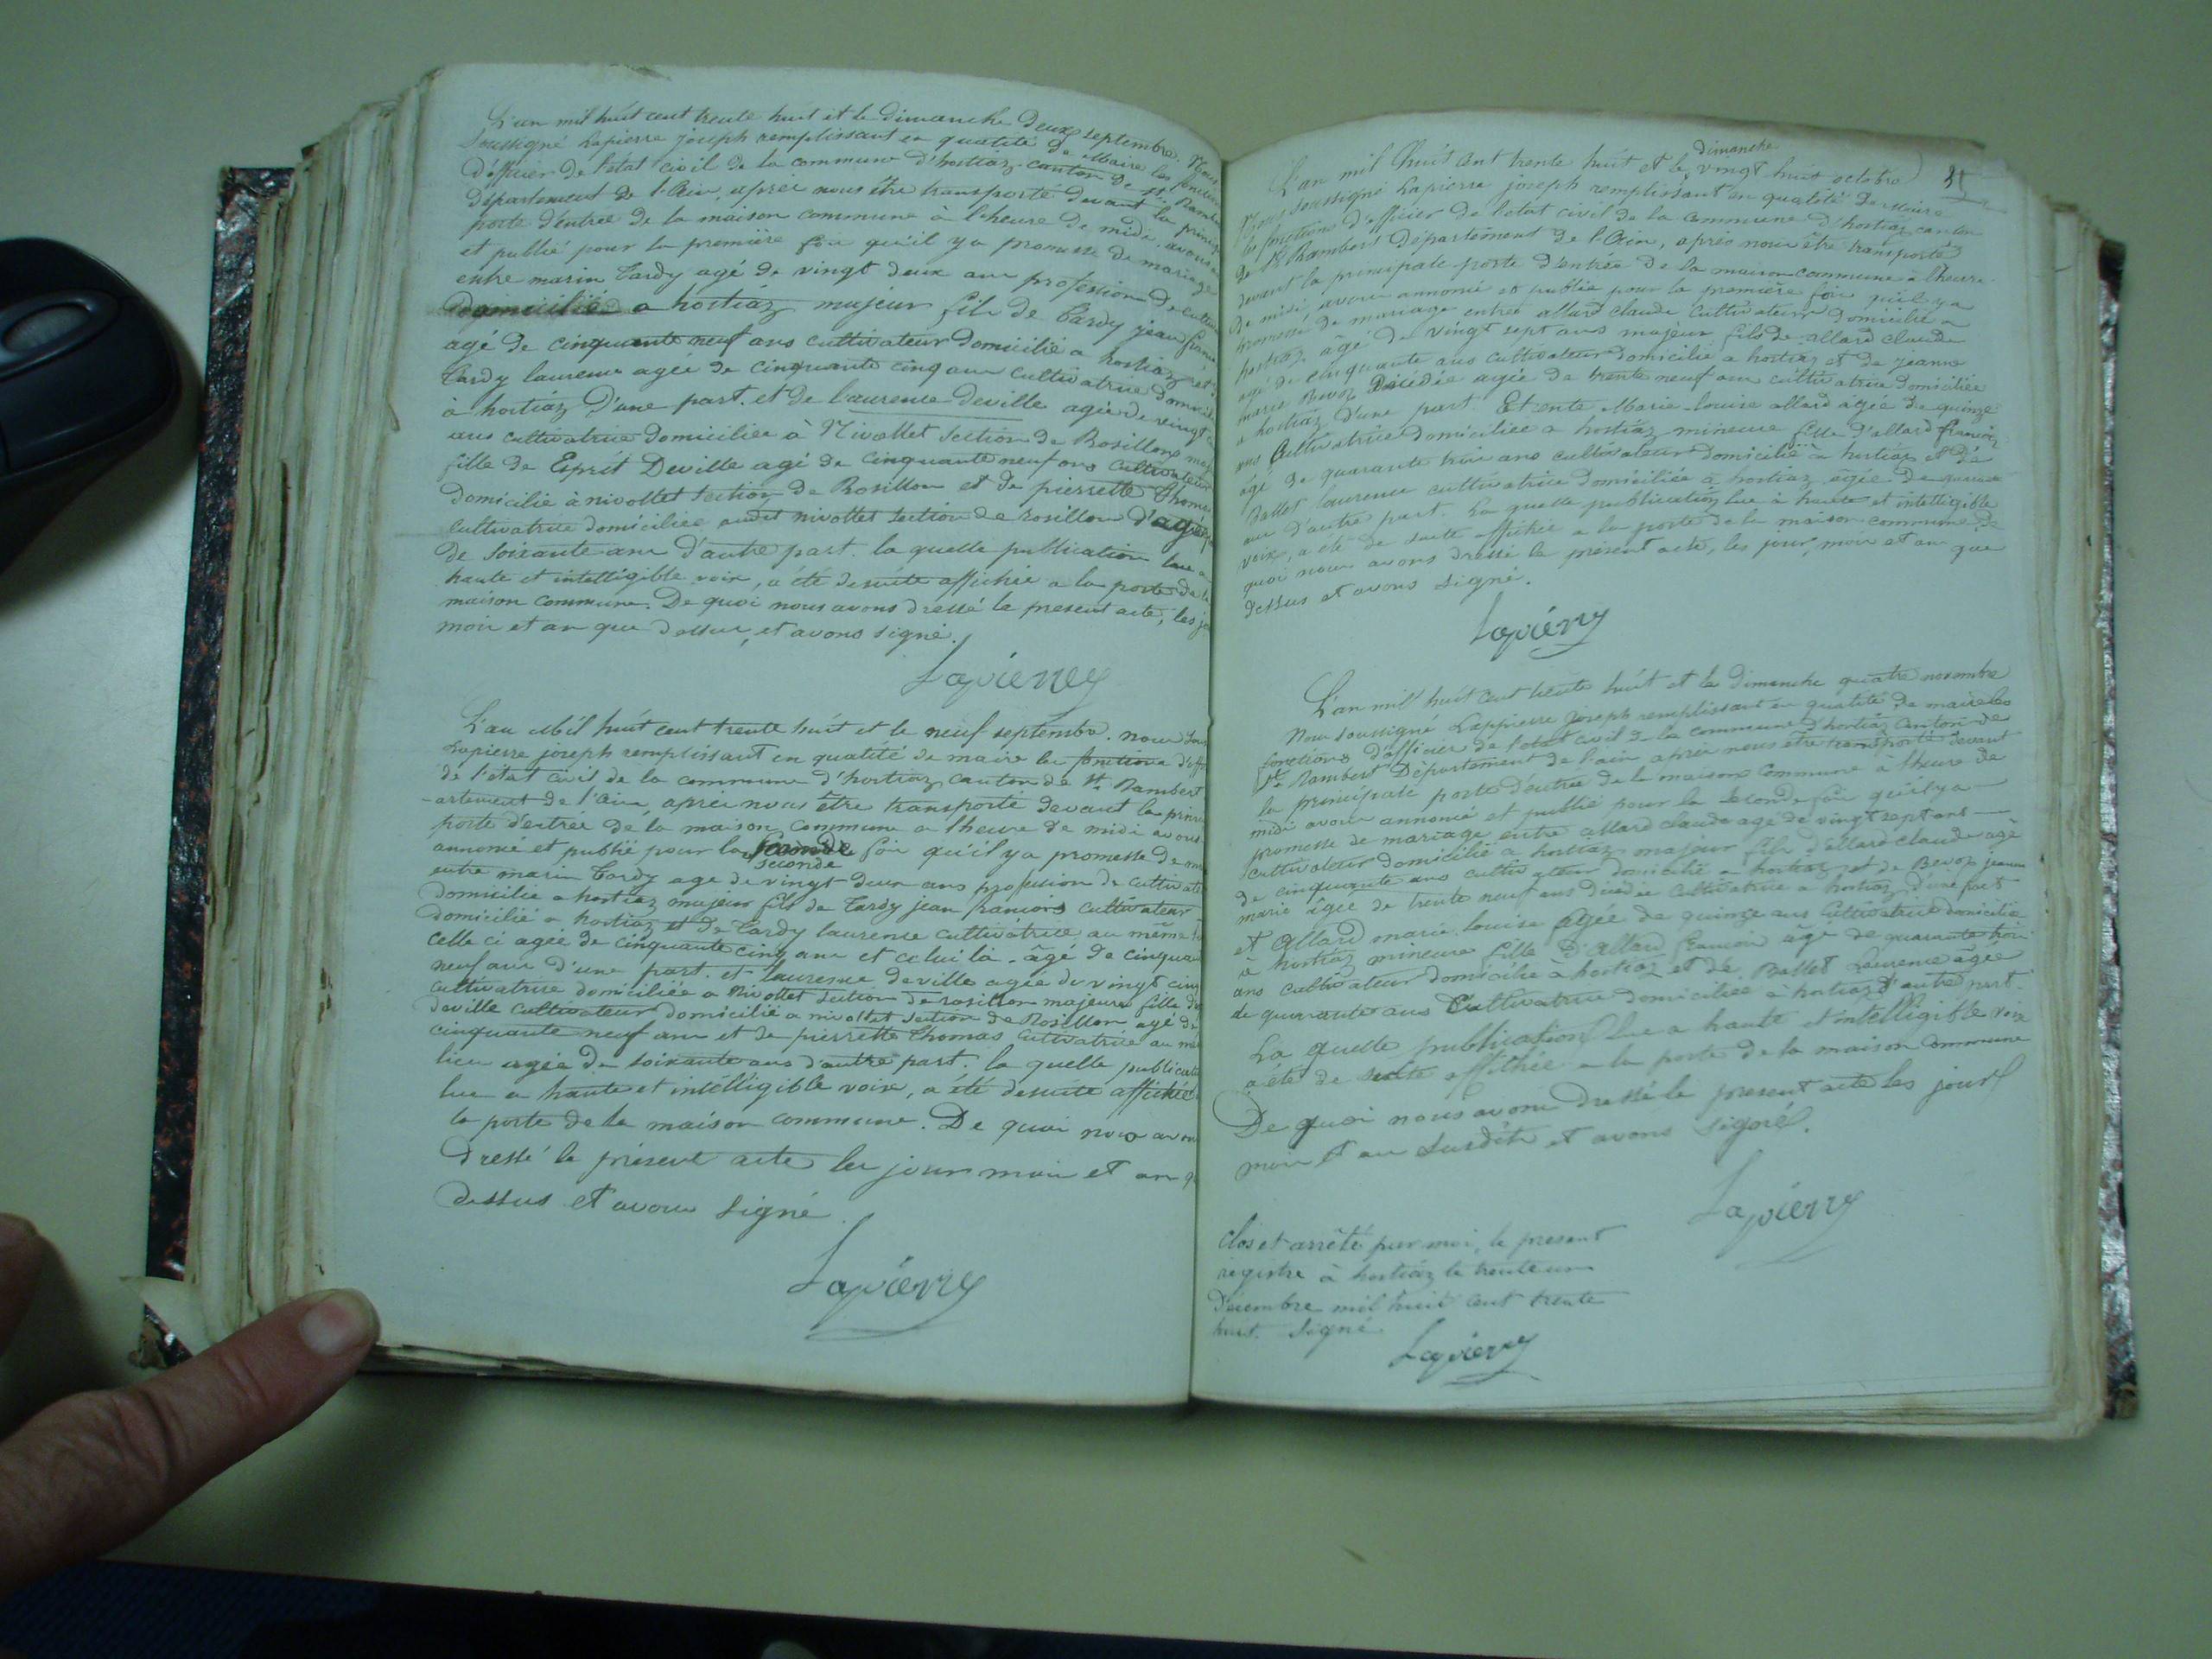 L'an mil huit cent trente huit et le dimanche deux septembre. Nous
soussigné Lapierre joseph remplissant en qualité de Maire les fonctions
d'officier de l'état civil de la commune d'hostiaz canton de st Rambert
département de l'Ain, après nous être transporté devant la principale
porte d'entrée de la maison commune à l'heure de midi avons
et publié pour la première fois qu'il y a promesse de mariage
entre marin Tardy agé de vingt deux ans profession de cultivateur
Domicilié a hostiaz majeur fils de Tardy jean
agé de cinquante neuf ans cultivateur domicilié a hostiaz et
Tardy laurence agée de cinquante cinq ans cultivatrice domiciliée
à hostiaz D'une part. et de laurence deville agée de vingt
ans cultivatrice Domiciliée à Nivollet section de Rosillon
fille de Esprit Deville agé de cinquante neuf ans cultivateur
domicilié à nivollet section de Rosillon et de pierrette Thomas
cultivatrice domiciliée audit nivollet section de rosillon d'agée
de soixante ans d'autre part. la quelle publication lue a
haute et intelligible voix, a été desuite affichée a la porte de la
maison commune. De quoi nous avons dressé le present acte, les
mois et an que dessus, et avons signé.
Lapierre
L'an Mil huit cent trente huit et le neuf septembre. nous
Lapierre joseph remplissant en qualité de maire les fonctions
de l'état civil de la commune d'hostiaz canton de St Rambert
-artement de l'Ain, après nous être transporté devant la
porte d'entrée de la maison commune a l'heure de midi avons
annoncé et publié pour la seconde fois qu'il y a promesse de
seconde
entre marin Tardy agé de vingt deux ans profession de
domicilié a hostiaz majeur fils de Tardy jean francois cultivateur
domicilié a hostiaz et de Tardy laurence cultivatrice au même
celle ci agée de cinquante cinq ans et celui là âgé de
neuf ans d'une part. et laurence deville agée de vingt cinq
cultivatrice domiciliée a Nivollet section de rosillon majeure fille
deville cultivateur domicilié a nivollet section de Rosillon agé de
cinquante neuf ans et de pierrette Thomas cultivatrice au
lieu agée de soixante ans d'autre part. la quelle
lue a haute et intelligible voix, a été desuite affichée
la porte de la maison commune. De quoi nous avons
dressé le présent acte les jour mois et an
dessus et avons signé.
Lapierre
dimanche
L'an mil huit cent trente huit et le vingt huit octobre
Nous soussigné Lapierre joseph remplissant en qualité de Maire
les fonctions d'officier de l'état civil de la commune d'hostiaz canton
de St Rambert Département de l'Ain, après nous être transporté
devant la principale porte d'entrée de la maison commune a l'heure
de midi avons annoncé et publié pour la première fois qu'il y a
promesse de mariage entre allard claude cultivateur domicilié a
hostiaz âgé de vingt sept ans majeur fils de allard claude
agé de cinquante ans cultivateur domicilié a hostiaz et de jeanne
marie Bevoz Décédée agée de trente neuf ans cultivatrice domiciliée
a hostiaz d'une part. Et ente Marie Louise allard agée de quinze
ans Cultivatrice domiciliée a hostiaz mineure fille d'allard francois
âgé de quarante trois ans cultivateur domicilié a hostiaz et de
Ballet laurence cultivatrice domiciliée a hostiaz agée de quarante
ans d'autre part. La quelle publication lue à haute et intelligible
voix, a été de suite affichée a la porte de la maison commune. de
quoi nous avons dressé le présent acte, les jour, mois et an que
dessus et avons signé.
Lapierre
L'an mil huit cent trente huit et le dimanche quatre novembre
Nous soussigné Lappierre joseph remplissant en qualité de maire les
fonctions d'officier de l'état civil de la commune d'hostiaz canton de
St Rambert Département de l'ain après nous être transporté devant
la principale porte d'entrée de la maison commune à l'heure de
midi avons annoncé et publié pour la seconde fois qu'il y a
promesse de mariage entre allard claude agé de vingt sept ans
cultivateur domicilié a hostiaz majeur fils d'allard claude agé
de cinquante ans cultivateur domicilié a hostiaz et de Bevoz jeanne
marie âgée de trente neuf ans décédée cultivatrice a hostiaz d'une part
et Allard marie louise agée de quinze ans Cultivatrice domiciliée
à hostiaz mineure fille D'allard francois âgé de quarante trois
ans cultivateur domicilié à hostiaz et de Ballet laurence âgée
de quarante ans Cultivatrice domiciliée à hostiaz d'autre part.
La quelle publication lue a haute et intelligible voix
a été de suite affichée a la porte de la maison commune
De quoi nous avons dressé le present acte les jour
mois et an susdits et avons signé.
Lapierre
Clos et arrêté par moi, le present
registre à hostiaz le trente un
Décembre mil huit cent trente
huit. Signé
Lapierre